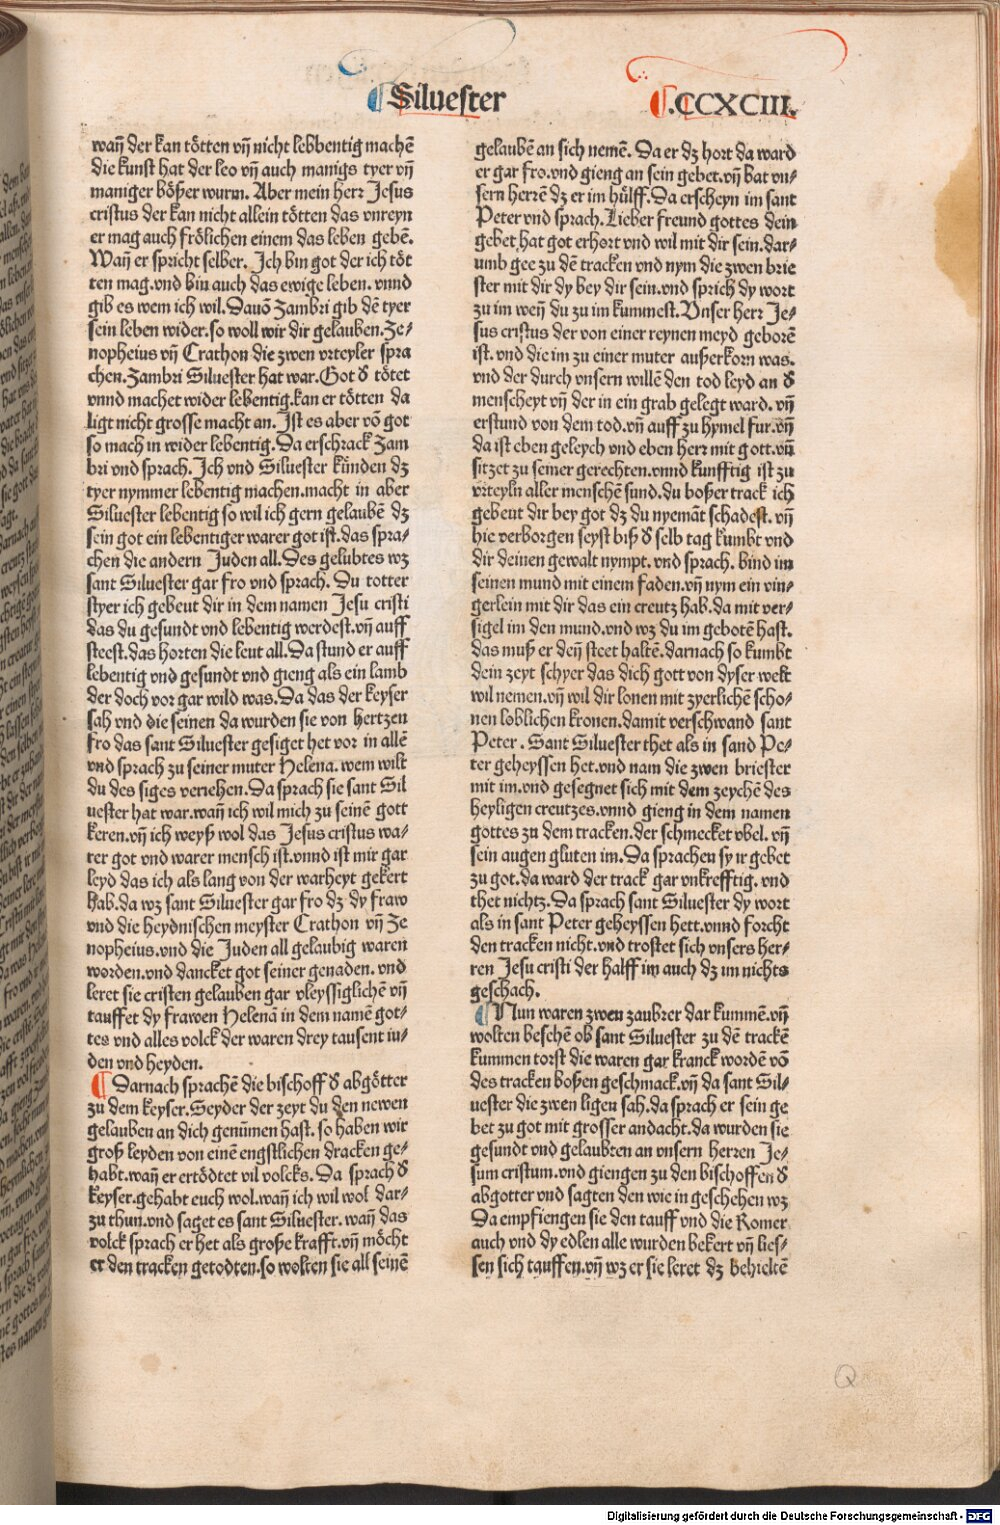 Siluester
.CCXCIII.
wañ der kan tötten vñ nicht lebbentig machē
die kunst hat der leo vñ auch manigs tyer vñ
maniger bößer wurm. Aber mein herr Jesus
cristus der kan nicht allein tötten das vnreyn
er mag auch frölichen einem das leben gebē.
Wañ er spricht selber. Ich bin got der ich töt
ten mag.vnd bin auch das ewige leben. vnnd
gib es wem ich wil. Dauō Zambri gib dē tyer
sein leben wider. so woll wir dir gelauben. Ze⸗
nopheius vñ Crathon die zwen vrteyler spra
chen. Zambri Siluester hat war. Got d̕ tötet
vnnd machet wider lebentig. kan er tötten da
ligt nicht grosse macht an. Ist es aber vō got
so mach in wider lebentig. Da erschrack Zam
bri vnd sprach. Ich vnd Siluester künden dz
tyer nymmer lebentig machen. macht in aber
Siluester lebentig so wil ich gern gelaubē dz
sein got ein lebentiger warer got ist. das spra⸗
chen die andern Juden all. Des gelubtes wz
sant Siluester gar fro vnd sprach. Du totter
styer ich gebeut dir in dem namen Jesu cristi
das du gesundt vnd lebentig werdest. vñ auff
steest. das horten die leut all. Da stund er auff
lebentig vnd gesundt vnd gieng als ein lamb
der doch vor gar wild was. Da das der keyser
sah vnd die seinen da wurden sie von hertzen
fro das sant Siluester gesiget het vor in allē
vnd sprach zu seiner muter Helena. wem wilt
du des siges veriehen. Da sprach sie sant Sil
uester hat war. wañ ich wil mich zu seinē gott
keren. vñ ich weyß wol das Jesus cristus wa⸗
rer got vnd warer mensch ist. vnnd ist mir gar
leyd das ich als lang von der warheyt gekert
hab. da wz sant Siluester gar fro dz dy fraw
vnd die heydnischen meyster Crathon vñ Ze
nopheius. vnd die Juden all gelaubig waren
worden. vnd dancket got seiner genaden. vnd
leret sie cristen gelauben gar vleyssiglichē vñ
tauffet dy frawen Helenā in dem namē got⸗
tes vnd alles volck der waren drey tausent iu⸗
den vnd heyden.
Darnach sprachē die bischoff d̕ abgötter
zu dem keyser. Seyder der zeyt du den newen
gelauben an dich genūmen hast. so haben wir
groß leyden von einē engstlichen dracken ge⸗
habt. wañ er ertödtet vil volcks. Da sprach d̕
keyser. gehabt euch wol. wañ ich wil wol dar⸗
zu thun. vnd saget es sant Siluester. wañ das
volck sprach er het als große krafft. vñ möcht
er den tracken getodten. so wolten sie all seinē
gelaubē an sich nemē. Da er dz hort da ward
er gar fro. vnd gieng an sein gebet. vñ bat vn⸗
sern herrē dz er im hülff. Da erscheyn im sant
Peter vnd sprach. Lieber freund gottes dein
gebet hat got erhort vnd wil mit dir sein. dar⸗
umb gee zu dē tracken vnd nym die zwen brie
ster mit dir dy bey dir sein. vnd sprich dy wort
zu im weñ du zu im kummest. Vnser herr Je⸗
sus cristus der von einer reynen meyd geborē
ist. vnd die im zu einer muter außerkorn was.
vnd der durch vnsern willē den tod leyd an d̕
menscheyt vñ der in ein grab gelegt ward. vñ
erstund von dem tod. vñ auff zu hymel fur. vñ
da ist eben geleych vnd eben herr mit gott. vñ
sitzet zu seiner gerechten. vnnd kunfftig ist zu
vrteyln aller menschē sund. du boßer track ich
gebeut dir bey got dz du nyemāt schadest. vñ
hie verborgen seyst biß d̕ selb tag kumbt vnd
dir deinen gewalt nympt. vnd sprach. bind im
seinen mund mit einem faden. vñ nym ein vin⸗
gerlein mit dir das ein creutz hab. da mit ver⸗
sigel im den mund. vnd wz du im gebotē hast.
das muß er deñ steet haltē. darnach so kumbt
dein zeyt schyer das dich gott von dyser welt
wil nemen. vñ wil dir lonen mit zyerlichē scho⸗
nen loblichen kronen. damit verschwand sant
Peter. Sant Siluester thet als in sand Pe⸗
ter geheyssen het. vnd nam die zwen briester
mit im. vnd gesegnet sich mit dem zeychē des
heyligen creutzes. vnnd gieng in dem namen
gottes zu dem tracken. der schmecket vbel. vñ
sein augen gluten im. Da sprachen sy ir gebet
zu got. da ward der track gar vnkrefftig. vnd
thet nichtz. Da sprach sant Siluester dy wort
als in sant Peter geheyssen hett. vnnd forcht
den tracken nicht. vnd trostet sich vnsers her⸗
ren Jesu cristi der halff im auch dz im nichts
geschach.
Nun waren zwen zaubrer dar kummē. vñ
wolten besehē ob sant Siluester zu dē trackē
kummen torst die waren gar kranck wordē vō
des tracken boßen geschmack. vñ da sant Sil⸗
uester die zwen ligen sah. da sprach er sein ge
bet zu got mit grosser andacht. da wurden sie
gesundt vnd gelaubten an vnsern herren Je⸗
sum cristum. vnd giengen zu den bischoffen d̕
abgotter vnd sagten den wie in geschehen wz
Da empfiengen sie den tauff vnd die Romer
auch vnd dy edlen alle wurden bekert vñ lies⸗
sen sich tauffen. vñ wz er sie leret dz behieltē
Q
Digitalisierung gefördert durch die Deutsche Forschungsgemeinschaft - DFG